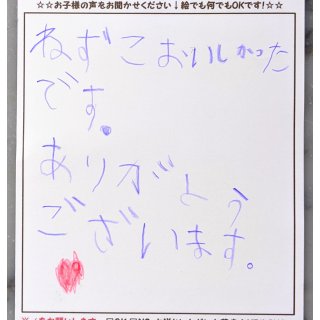 ☆☆お子様の声をお聞かせください↓絵でも何でもOKです!☆☆
ねずこおいしかった
です。
ありがとう
ございます。